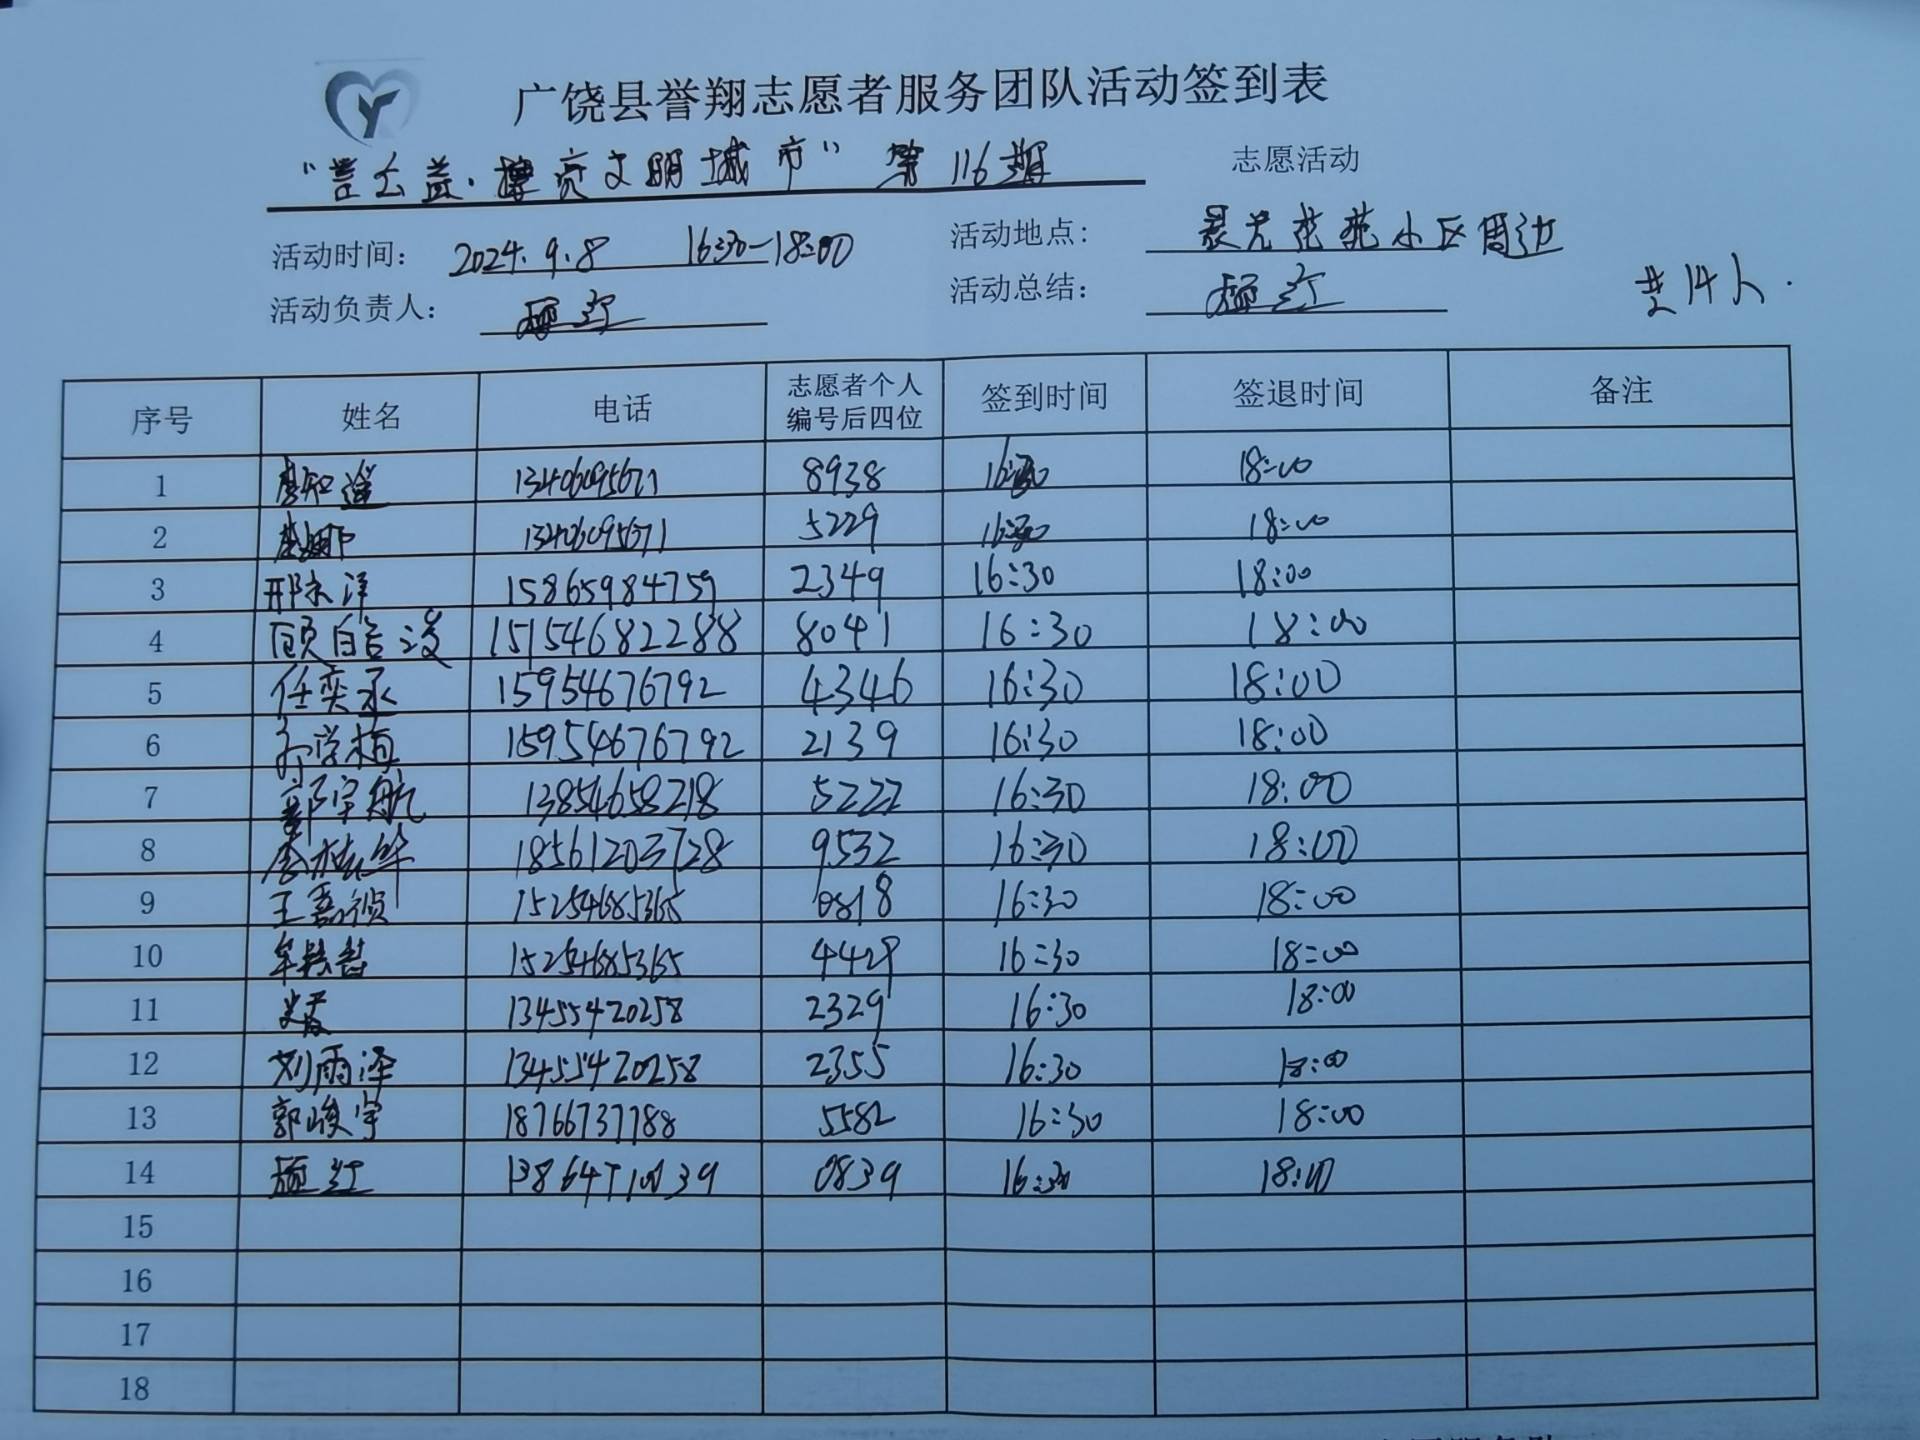 广饶县誉翔志愿者服务团队活动签到表
公益·擦亮文明城市" 第116期 志愿活动
活动时间: 2024.9.8 16:30—18:00 活动地点: 晨光花苑小区周边
活动负责人: 活动总结: 共14人.
序号 姓名 电话 志愿者个人编号后四位 签到时间 签退时间 备注
1 13406095671 8938 16:30 18:00
2 13406095671 5229 16:30 18:00
3 邢永洋 15865984759 2349 16:30 18:00
4 15154682288 8041 16:30 18:00
5 任奕丞 15954676792 4346 16:30 18:00
6 15954676792 2139 16:30 18:00
7 郭宇航 13854658218 5222 16:30 18:00
8 18561203728 9532 16:30 18:00
9 15254685365 0818 16:30 18:00
10 15254685365 4429 16:30 18:00
11 13455420258 2329 16:30 18:00
12 刘雨泽 13455420258 2355 16:30 18:00
13 郭峻宇 18766737788 5582 16:30 18:00
14 0839 16:30 18:00
15
16
17
18